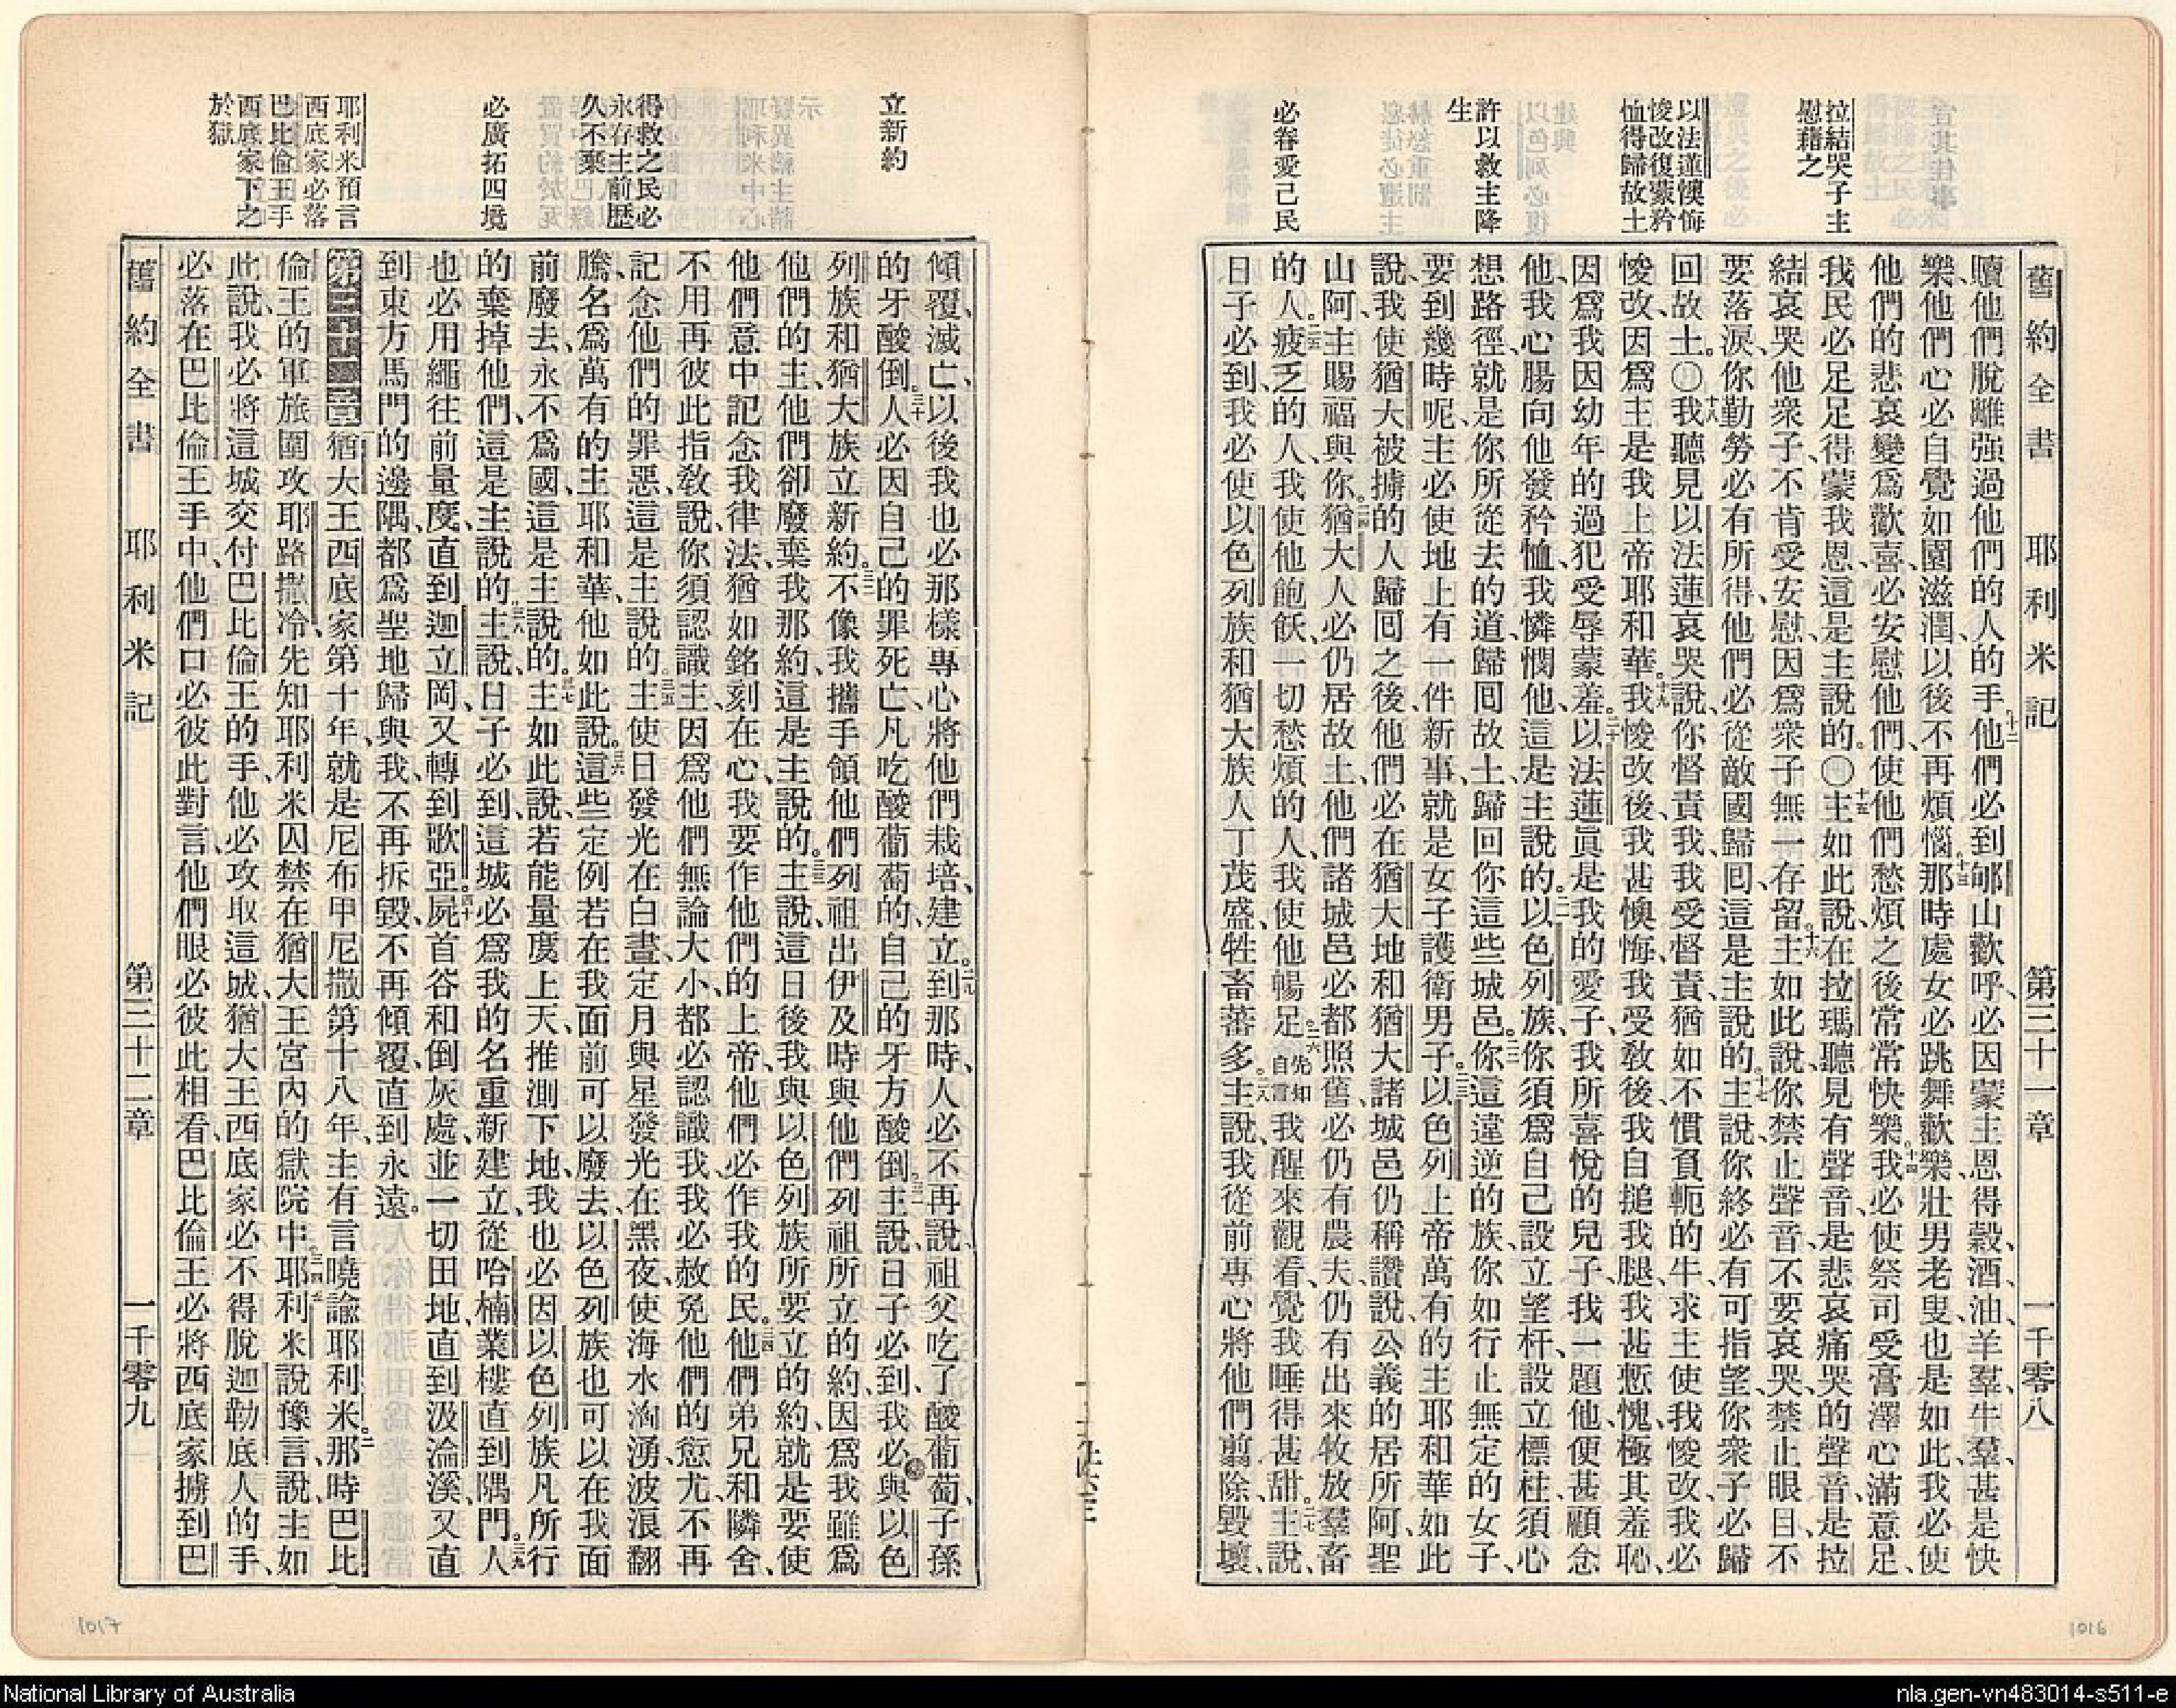 舊約全書 耶利米記 第三十一章 一千零八
拉結哭子主
慰藉之
以法蓮懊悔
悛改復蒙矜
恤得歸故土
許以救主降
生
必眷愛己民
贖他們脫離强過他們的人的手、十二他們必到郇山歡呼、必因蒙主恩得穀、酒、油、羊羣、牛羣、甚是快
樂、他們心必自覺如園滋潤、以後不再煩惱。十三那時處女必跳舞歡樂、壯男老叟、也是如此、我必使
他們的悲哀變爲歡喜、必安慰他們、使他們愁煩之後、常常快樂。十四我必使祭司受膏澤心滿意足、
我民必足足得蒙我恩、這是主說的。〇十五主如此說、在拉瑪聽見有聲音、是悲哀痛哭的聲音、是拉
結哀哭他衆子、不肯受安慰、因爲衆子無一存留。十六主如此說、你禁止聲音、不要哀哭、禁止眼目、不
要落淚、你勤勞必有所得、他們必從敵國歸囘、這是主說的。十七主說、你終必有可指望、你衆子必歸
回故土。〇十八我聽見以法蓮哀哭說、你督責我、我受督責、猶如不慣負軛的牛、求主使我悛改、我必
悛改、因爲主是我上帝耶和華。十九我悛改後、我甚懊悔、我受敎後、我自搥我腿、我甚慙愧、極其羞恥、
因爲我因幼年的過犯受辱蒙羞。二十以法蓮眞是我的愛子、我所喜悅的兒子、我一題他、便甚顧念
他、我心腸向他發矜恤、我憐憫他、這是主說的。二一以色列族、你須爲自己設立望杆、設立標柱、須心
想路徑、就是你所從去的道、歸囘故土、歸回你這些城邑。二二你這違逆的族、你如行止無定的女子、
要到幾時呢、主必使地上有一件新事、就是女子護衛男子。二三以色列上帝萬有的主耶和華如此
說、我使猶大被擄的人歸囘之後、他們必在猶大地和猶大諸城邑仍稱讚說、公義的居所阿、聖
山阿、主賜福與你。二四猶大人必仍居故土、他們諸城邑必都照舊、必仍有農夫、仍有出來牧放羣畜
的人。二五疲乏的人、我使他飽飫、一切愁煩的人、我使他暢足。二六先知自言我醒來觀看、覺我睡得甚甜。二七主說、
日子必到、我必使以色列族和猶大族人丁茂盛、牲畜蕃多。二八主說、我從前專心將他們翦除、毀壞、
1016
立新約
得救之民必
永存主前歷
久不棄
必廣拓四境
耶利米預言
西底家必落
巴比倫王手
西底家下之
於獄
傾覆、滅亡、以後我也必那樣專心將他們栽培、建立。二九到那時、人必不再說、祖父吃了酸葡萄、子孫
的牙酸倒。三十人必因自己的罪死亡、凡吃酸葡萄的、自己的牙方酸倒。三一主說、日子必到、我必與以色
列族和猶大族立新約。三二不像我攜手領他們列祖出伊及時、與他們列祖所立的約、因爲我雖爲
他們的主、他們卻廢棄我那約、這是主說的。三三主說、這日後我與以色列族所要立的約、就是要使
他們意中記念我律法、猶如銘刻在心、我要作他們的上帝、他們必作我的民。三四他們弟兄和隣舍、
不用再彼此指敎說、你須認識主、因爲他們無論大小、都必認識我、我必赦免他們的愆尤、不再
記念他們的罪惡、這是主說的。三五主使日發光在白晝、定月與星發光在黑夜、使海水洶湧、波浪翻
騰、名爲萬有的主耶和華、他如此說。三六這些定例若在我面前可以廢去、以色列族也可以在我面
前廢去、永不爲國、這是主說的。三七主如此說、若能量度上天、推測下地、我也必因以色列族凡所行
的棄掉他們、這是主說的。三八主說、日子必到、這城必爲我的名重新建立、從哈楠業樓直到隅門。三九人
也必用繩往前量度、直到迦立岡、又轉到歌亞。四十屍首谷和倒灰處、並一切田地、直到汲淪溪、又直
到東方馬門的邊隅、都爲聖地歸與我、不再拆毀、不再傾覆、直到永遠。
第三十二章 猶大王西底家第十年、就是尼布甲尼撒第十八年、主有言曉諭耶利米。二那時巴比
倫王的軍旅圍攻耶路撒冷、先知耶利米囚禁在猶大王宮內的獄院中。三四五耶利米說豫言說、主如
此說、我必將這城交付巴比倫王的手、他必攻取這城、猶大王西底家必不得脫迦勒底人的手、
必落在巴比倫王手中、他們口必彼此對言、他們眼必彼此相看、巴比倫王必將西底家擄到巴
舊約全書 耶利米記 第三十二章 一千零九
1017
National Library of Australia
nla.gen-vn483014-s511-e